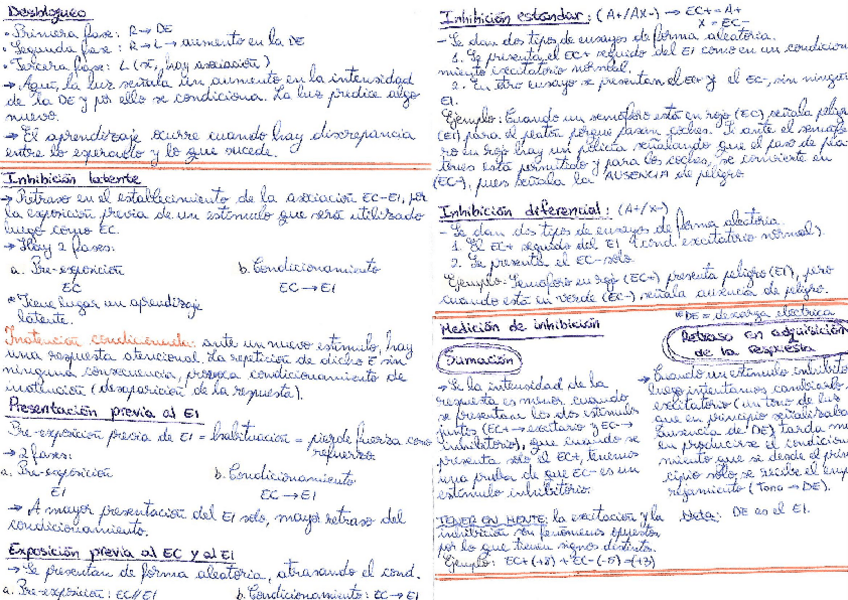 Desbloqueo
• Primera fase: R → DE
• Segunda fase: R → L → aumento en la DE
• Tercera fase: L (sí, hay asociación)
→ Aquí, la luz señala un aumento en la intensidad
de la DE y por ello se condiciona. La luz predice algo
nuevo.
→ El aprendizaje ocurre cuando hay discrepancia
entre lo esperado y lo que sucede.
Inhibición latente
→ Retraso en el establecimiento de la asociación EC-EI, por
la exposición previa de un estímulo que será utilizado
luego como EC.
→ Hay 2 fases:
a. Pre-exposición b. Condicionamiento
EC EC → EI
* Tiene lugar un aprendizaje
latente.
Inatención condicionada: ante un nuevo estímulo, hay
una respuesta atencional. La repetición de dicho E sin
ninguna consecuencia, provoca condicionamiento de
inatención (desaparición de la respuesta).
Presentación previa al EI
Pre-exposición previa de EI = habituación = pierde fuerza como
refuerzo
→ 2 fases:
a. Pre-exposición b. Condicionamiento
EI EC → EI
→ A mayor presentación del EI solo, mayor retraso del
condicionamiento.
Exposición previa al EC y al EI
→ Se presentan de forma aleatoria, atrasando el cond.
a. Pre-exposición: EC//EI b. Condicionamiento: EC → EI
Inhibición estándar: (A+/AX-) → EC+ = A+
X = EC-
- Se dan dos tipos de ensayos de forma aleatoria.
1. Se presenta el EC+ seguido del EI como en un condicio
namiento excitatorio normal.
2. En otro ensayo se presentan el EC+ y el EC-, sin ningún
EI.
Ejemplo: Cuando un semáforo está en rojo (EC) señala peligro
(EI) para el peatón porque pasan coches. Si ante el semáfo
ro en rojo hay un policía señalando que el paso de pea
tones está permitido y para los coches, se convierte en
(EC-), pues señala la AUSENCIA de peligro.
Inhibición diferencial: (A+/X-)
- Se dan dos tipos de ensayos de forma aleatoria.
1. El EC+ seguido del EI (cond. excitatorio normal).
2. Se presenta el EC- solo.
Ejemplo: Semáforo en rojo (EC+) presenta peligro (EI), pero
cuando está en verde (EC-), señala ausencia de peligro.
*DE = descarga eléctrica
Medición de inhibición
Sumación
→ Si la intensidad de la
respuesta es menor cuando
se presentan los dos estímulos
juntos (EC+ → excitario y EC- →
inhibitorio), que cuando se
presenta solo el EC+, tenemos
una prueba de que EC- es un
estímulo inhibitorio.
TENER EN MENTE: la excitación y la
inhibición son fenómenos opuestos,
por lo que tienen signos distintos.
Ejemplo: EC+ (+8) + EC- (-5) = (+3)
Retraso en adquisición
de la respuesta
→ Cuando un estímulo inhibito
luego intentamos cambiarlo
excitatorio (un tono de luz
que en principio señalizaba
ausencia de DE) tarda m
en producirse el condicion
miento que si desde el prin
cipio sólo se recibe el emp
rejamiento (Tono → DE).
Nota: DE es el EI.